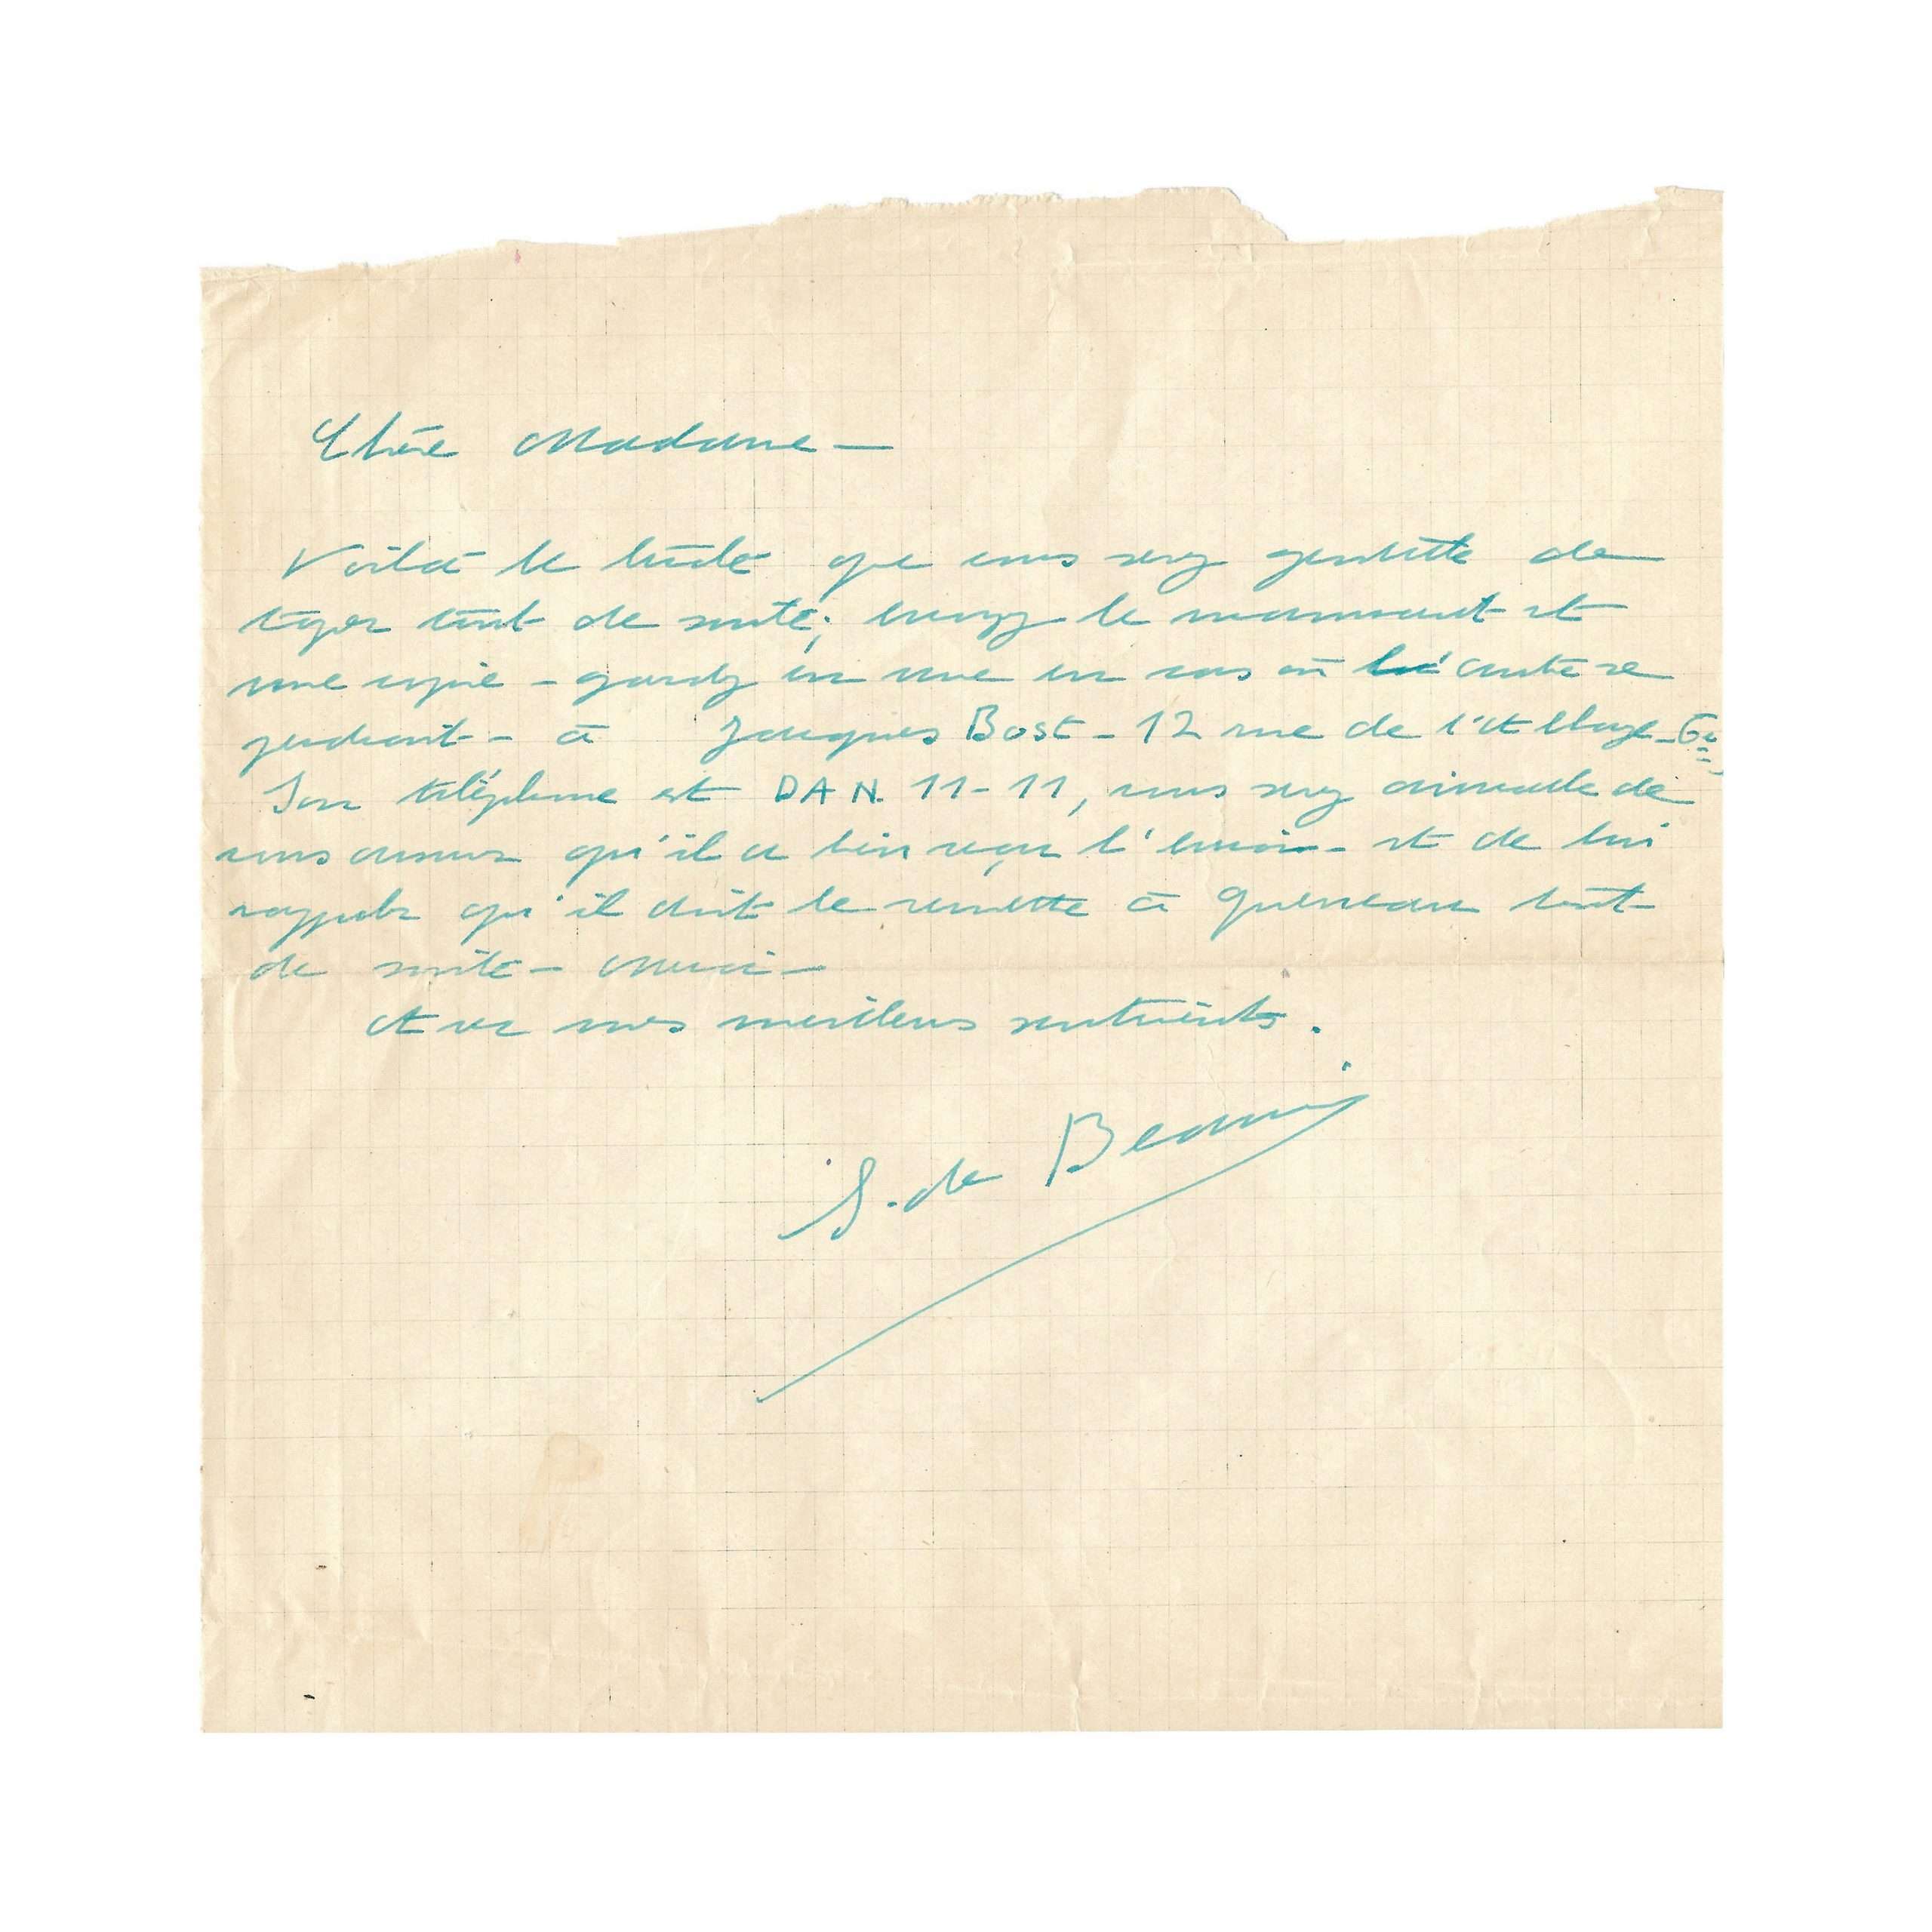 Chère Madame –
Voilà le texte que vous serez gentille de
taper tout de suite; envoyez le manuscrit et
une copie – gardez en une en cas où l'autre se
perdrait – à Jacques Bost – 12 rue de l'Abbaye – 6e
Son téléphone est DAN. 11-11, vous serez aimable de
vous assurer qu'il a bien reçu l'envoi – et de lui
rappeler qu'il doit le remettre à Queneau tout
de suite – Merci –
Avec mes meilleurs sentiments.
S. de Beauvoir